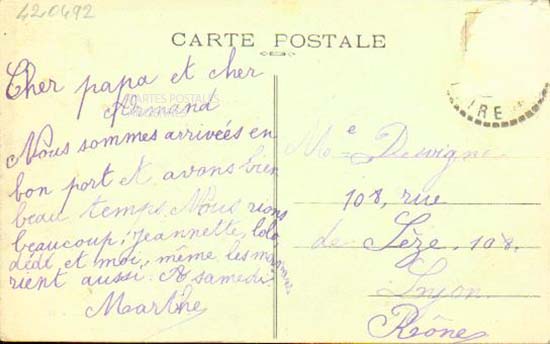 420492
CARTE POSTALE
Cher papa et cher
Armand
CARTES POSTALES
Nous sommes arrivées en
bon port et avons bien
beau temps. Nous rions
beaucoup; Jeannette, lolo,
dédé et moi, même les
rient aussi. A samedi
Marthe
IRE
Me Desvigne
108, rue
de Sèze, 108.
Lyon
Rhône